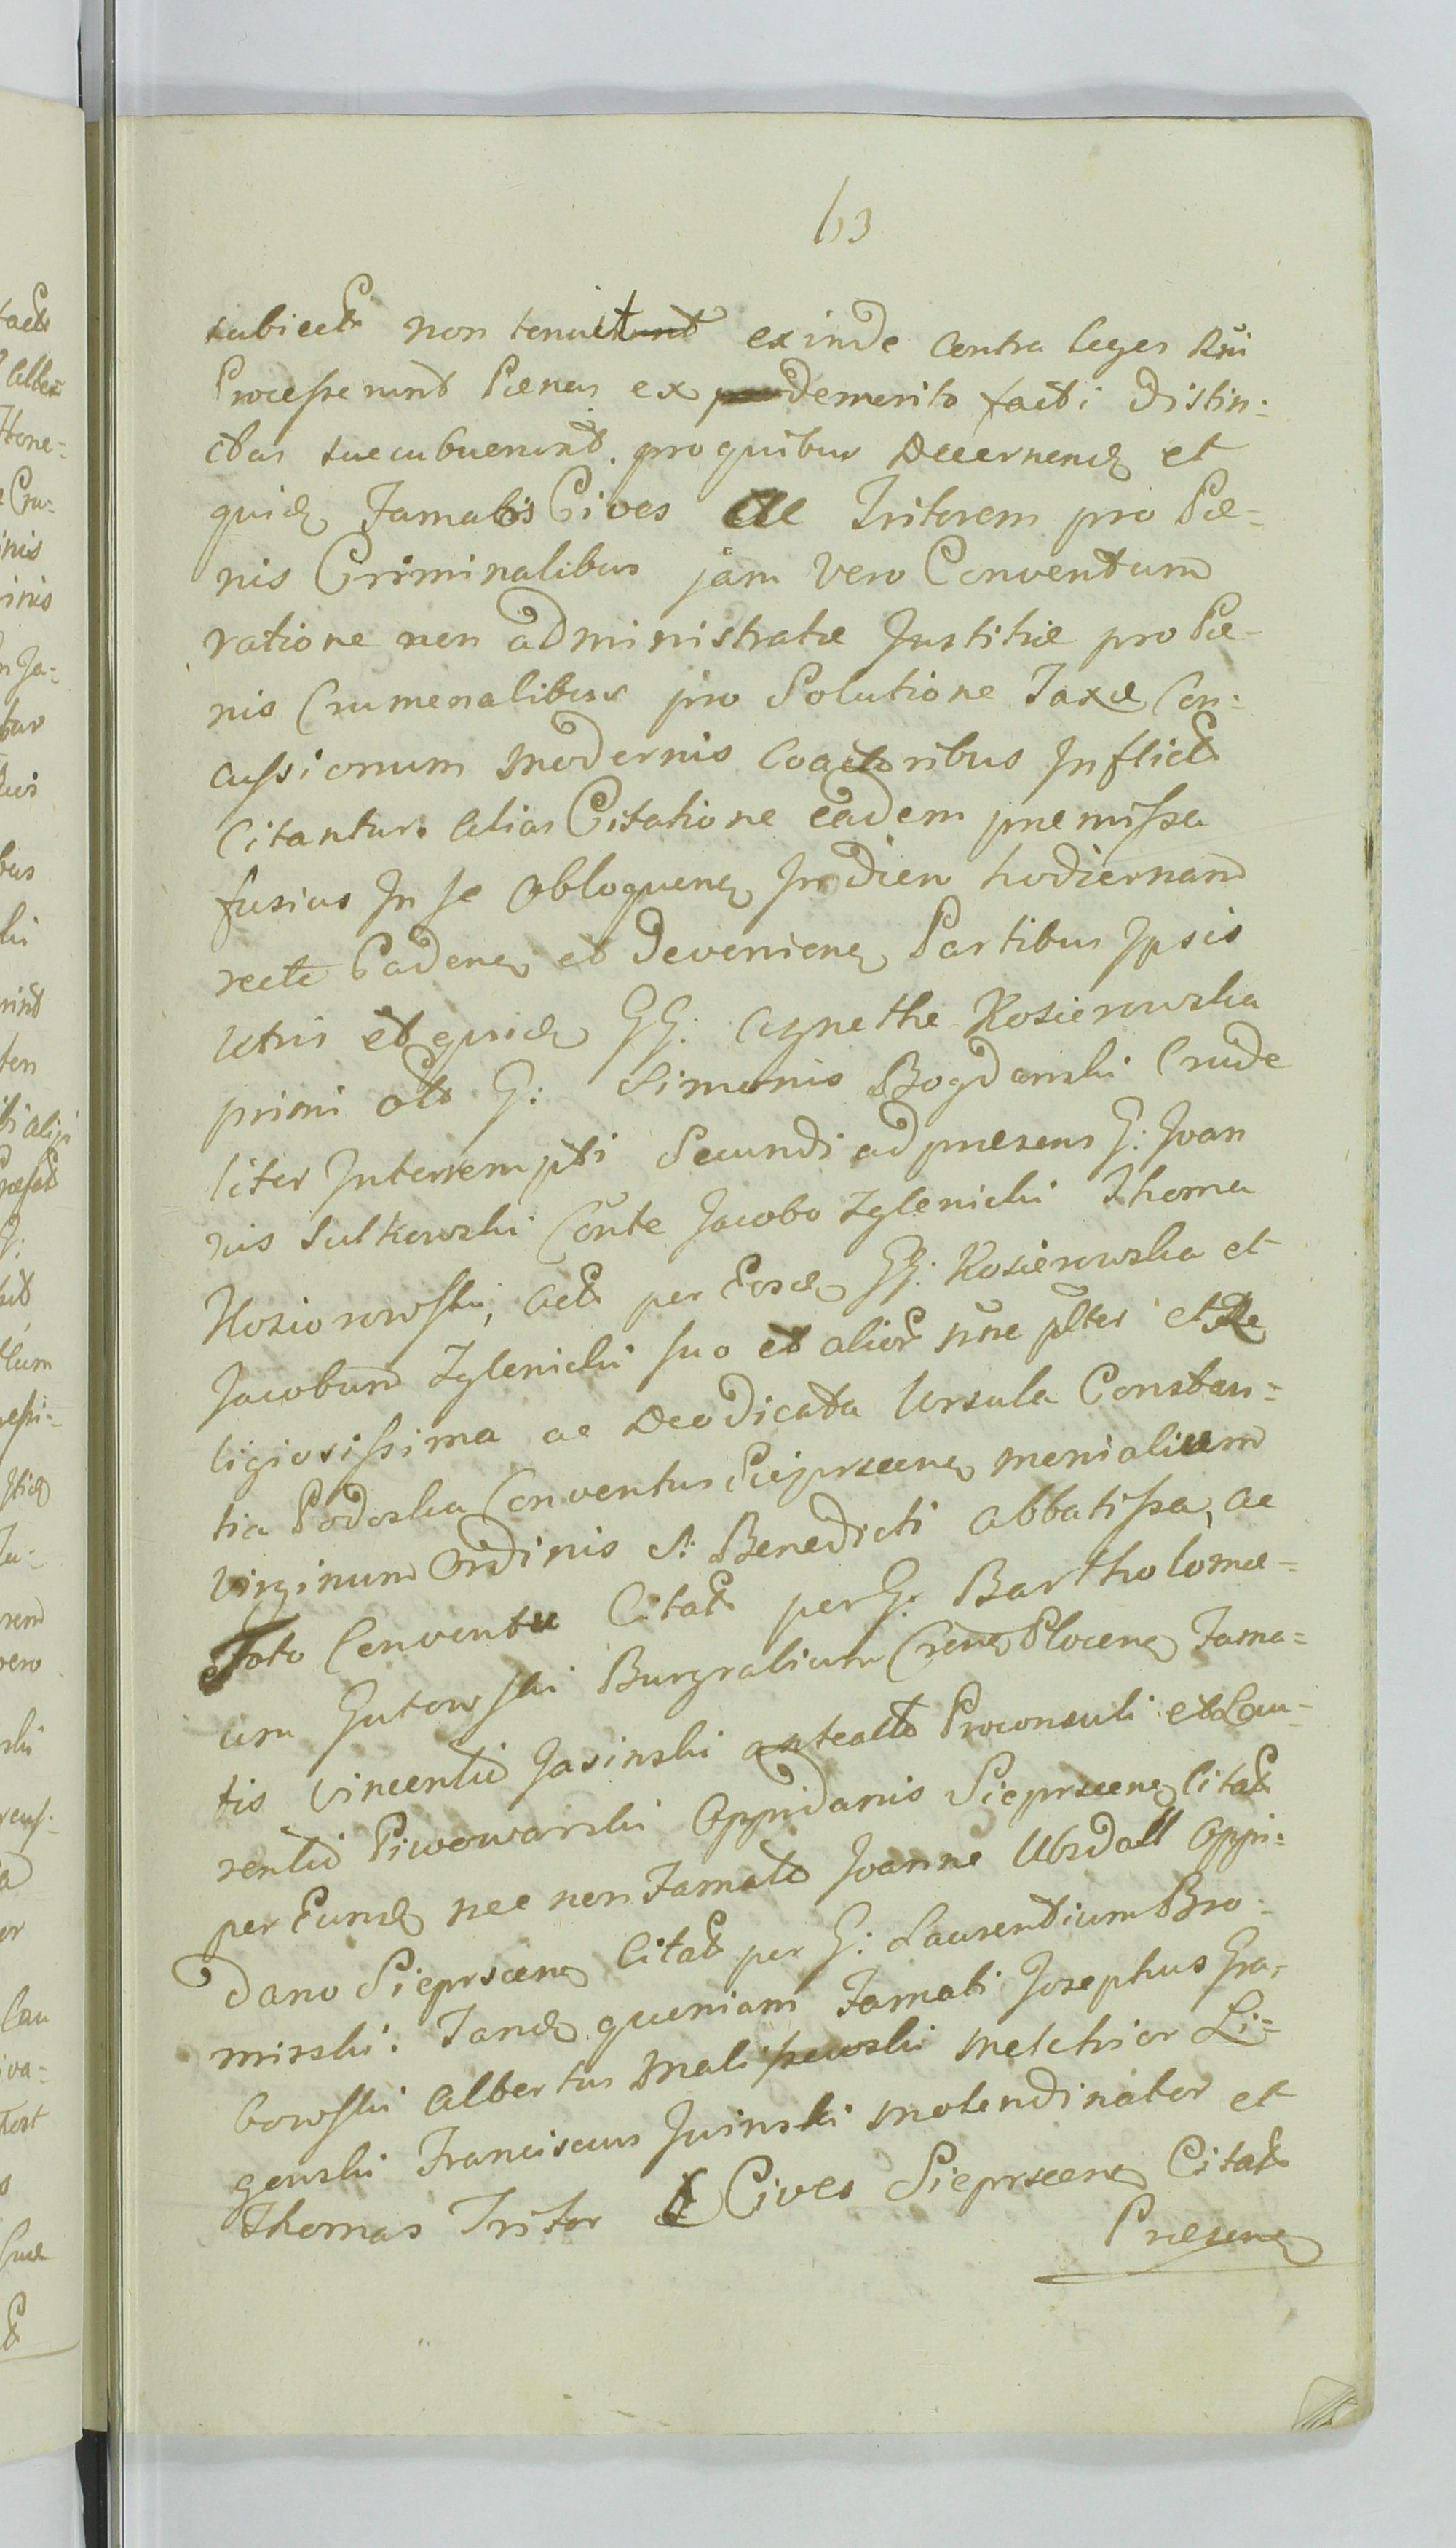 63
subiect non tenuit exinde contra leges Rni
Processerunt Pænas ex demerito facti distin-
ctas succubuerunt. pro quibus Decernend et
quid Famatos Cives ac Tritorem pro Pæ-
nis Criminalibus jam vero Conventum
ratione non administratæ Justitiæ pro Pæ-
nis Crumenalibus pro Solutione Taxæ Con-
cussionum modernis Coactoribus Inflict
Citantur. alias Citatione eadem præmissa
fusius In se obloquen In diem hodiernam
recte Caden et devenien Partibus Ipsis
utris et quid GG: Agnethe Kosierowska
primi olt G: Simonis Bogdanski Crude
liter Interempti Secundi ad præsens G: Joan
nis Sulkowski Conte Jacobo Zglenicki Thoma
Kosiorowski, Act per Eosd GG: Kosierowska et
Jacobum Zglenicki suo et alior nne plter et Re
ligiosissima ac Deo dicata Ursula Constan-
tia Podoska Conventus Sieprscen monialium
Virginum Ordinis S: Benedicti Abbatissa, ac
Toto Conventu Citat per G: Bartholomæ-
um Gutowski Burgrabium Cren Plocen Fama-
tis Vincentio Jasinski anteacto Proconsuli et Lau-
rentio Piwowarski Oppidanis Sieprscen Citat
per Eund nec non Famato Joanne Ubsdall Oppi-
dano Sieprscen Citat per G: Laurentium Bro-
minski. Tand quoniam Famati Josephus Gra-
bowski Albertus Maliszewski Melchior Li-
gowski Franciscus Iwinski molendinator et
Thomas Tritor Cives Sieprscen Citat
Præsen